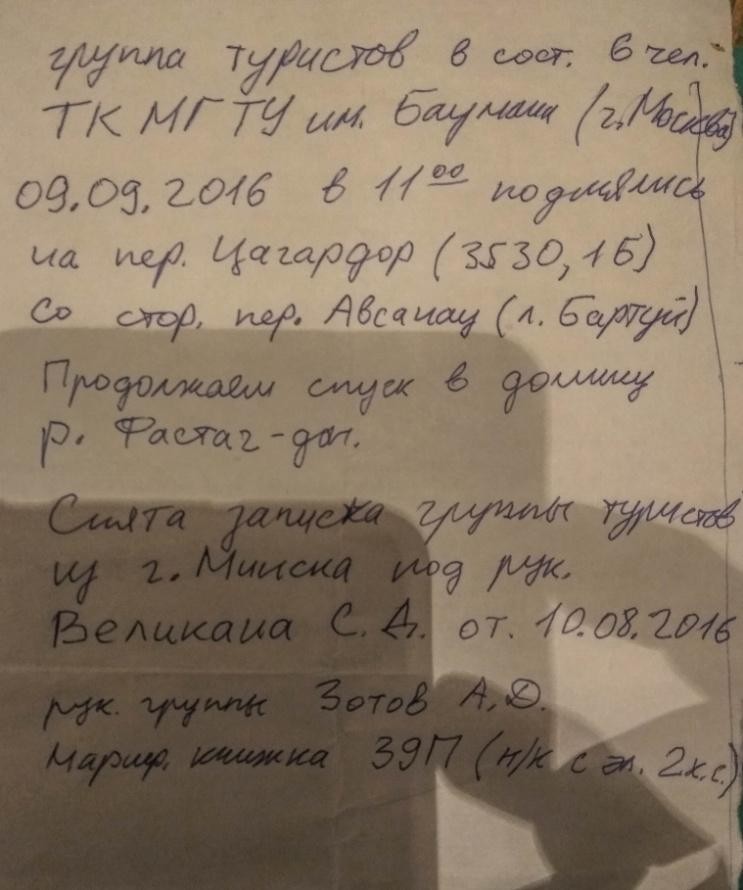 группа туристов в сост. 6 чел.
ТК МГТУ им. Баумана (г. Москва)
09.09.2016 в 11⁰⁰ поднялись
на пер. Цагардор (3530, 1Б)
со стор. пер. Авсанау (л. Бартуй)
Продолжаем спуск в долину
р. Фастаг-дон.
Снята записка группы туристов
из г. Минска под рук.
Великана С. Д. от. 10.08.2016
рук. группы Зотов А.Д.
Марш. книжка 39П (н/к с эл. 2к.с.)